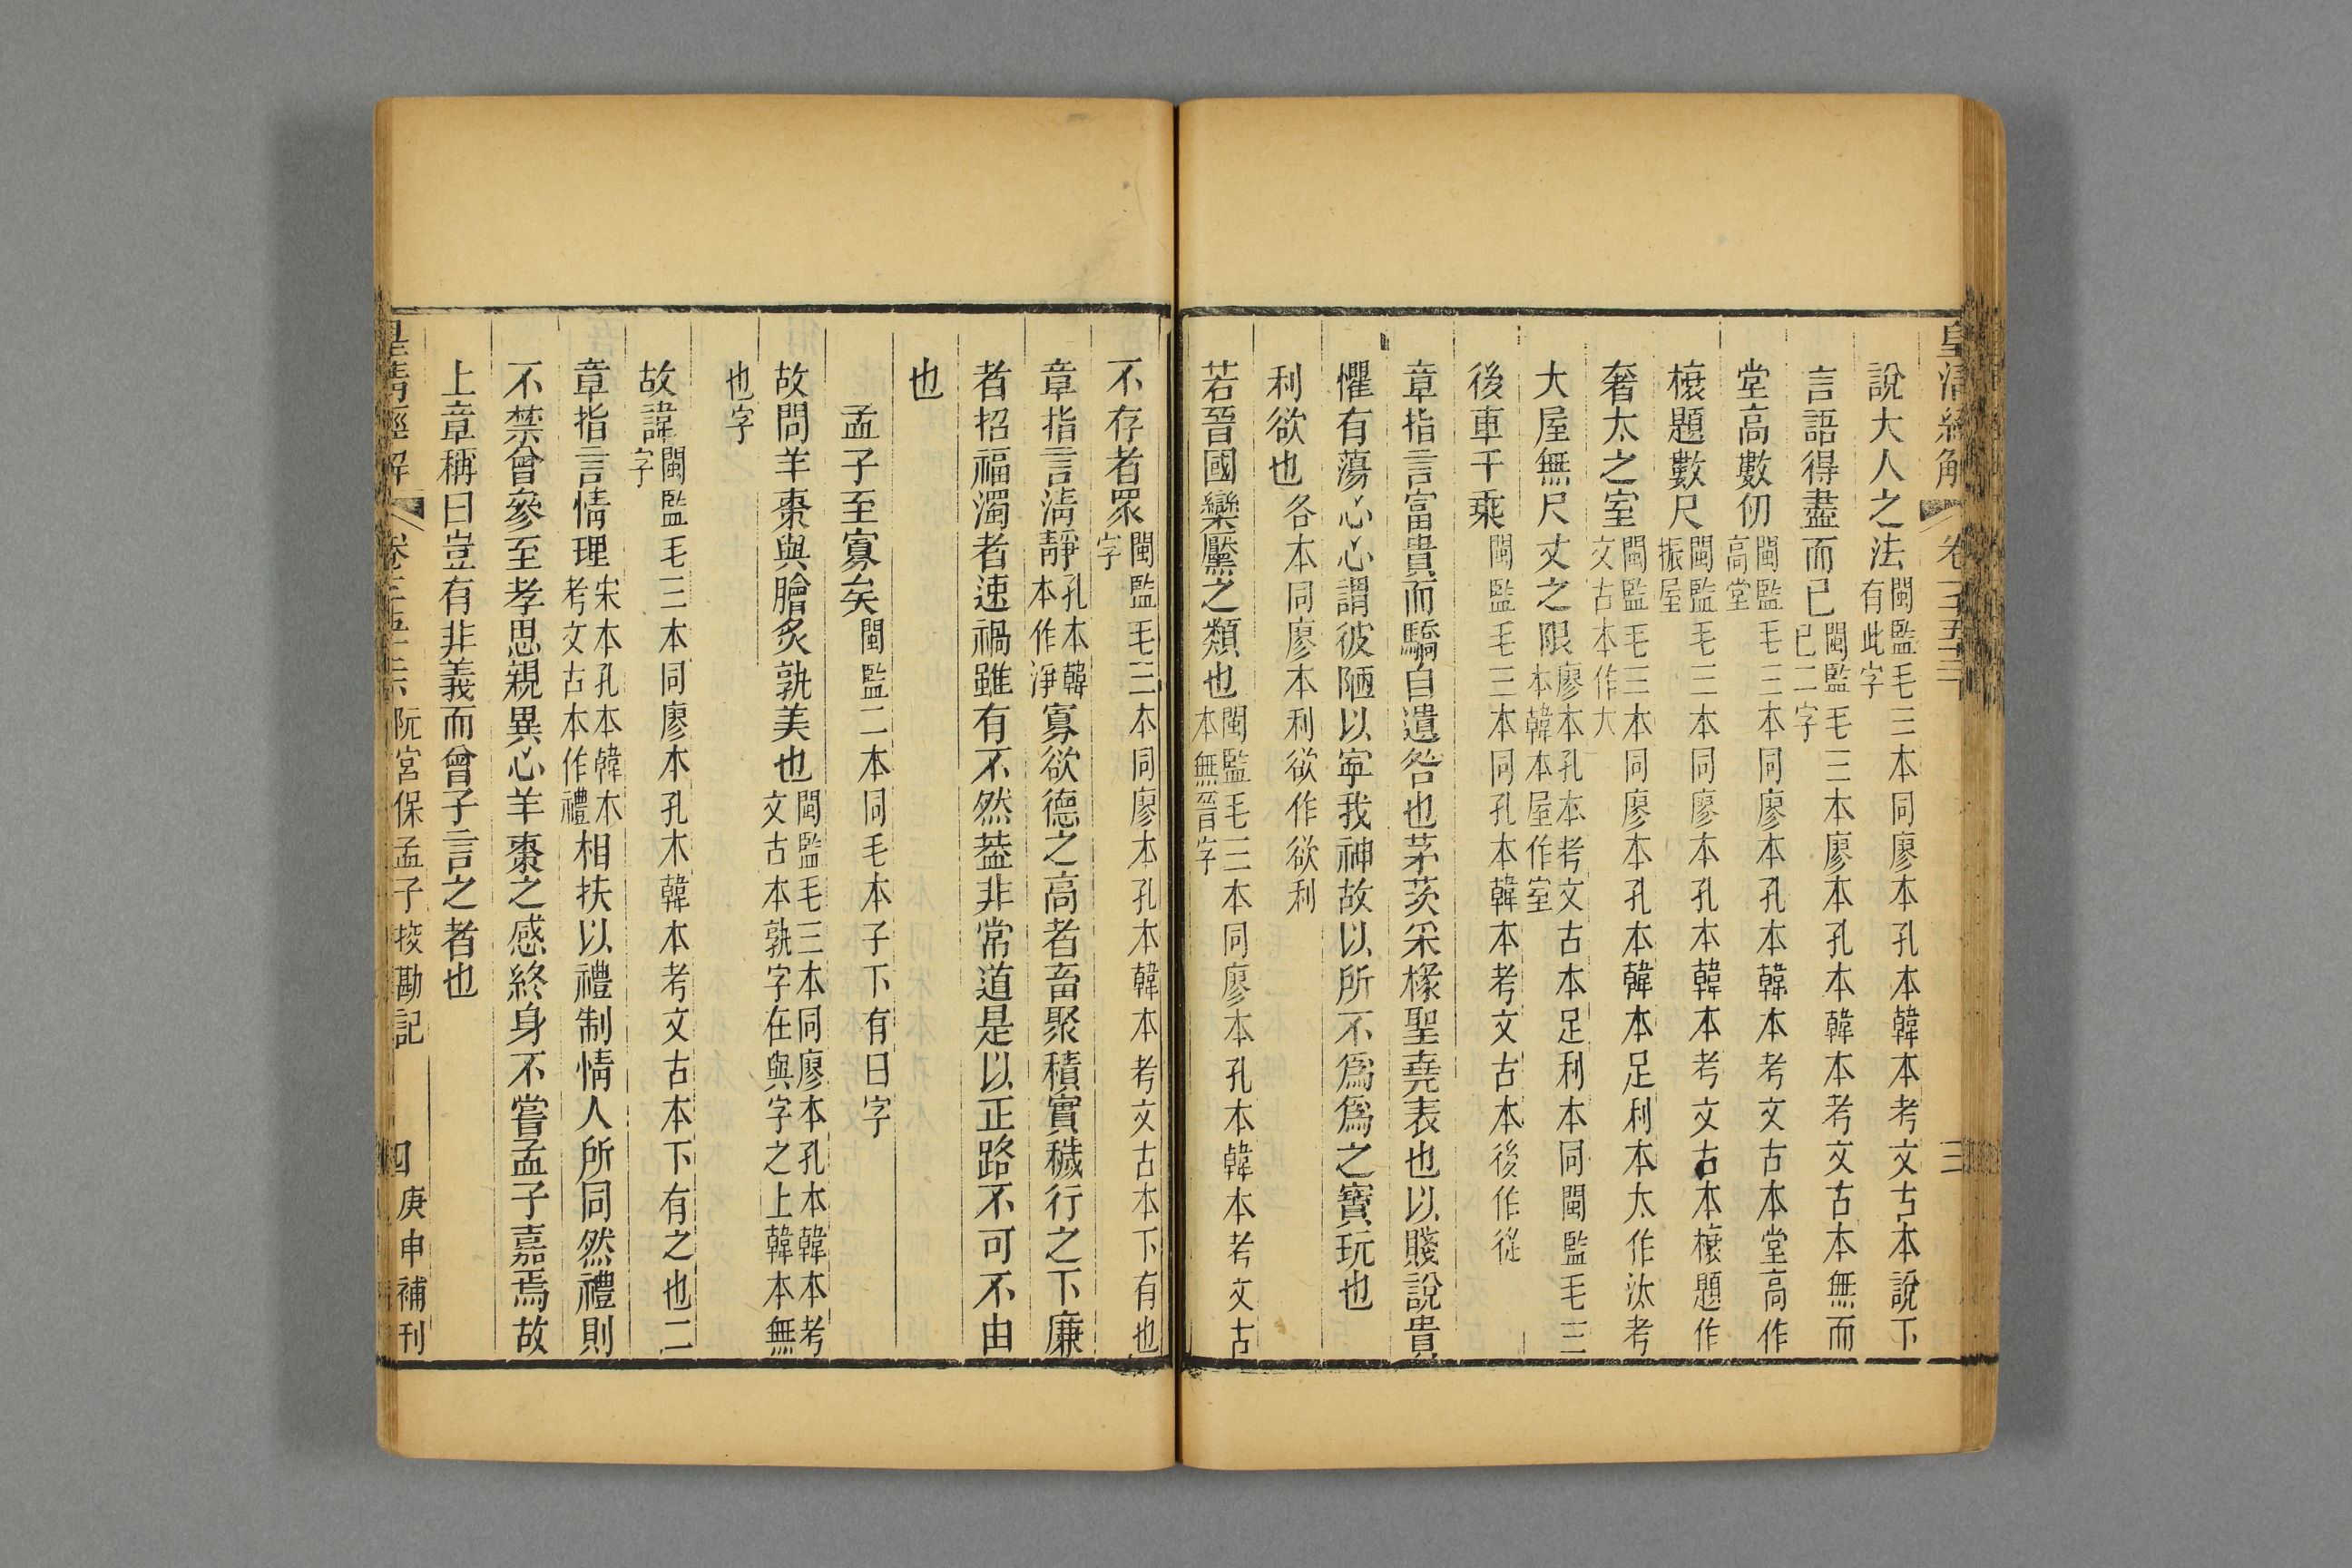 皇清經解 卷 三
說大人之法閩監毛三本同廖本孔本韓本考文古本說下有此字
言語得盡而已閩監毛三本廖本孔本韓本考文古本無而已二字
堂高數仞閩監毛三本同廖本孔本韓本考文古本堂高作高堂
榱題數尺閩監毛三本同廖本孔本韓本考文古本榱題作振屋
奢太之室閩監毛三本同廖本孔本韓本足利本太作汰考文古本作大
大屋無尺丈之限廖本孔本考文古本足利本同閩監毛三本韓本屋作室
後車千乘閩監毛三本同孔本韓本考文古本後作從
章指言富貴而驕自遺咎也茅茨采椽聖堯表也以賤說貴
懼有蕩心心謂彼陋以寧我神故以所不爲爲之寶玩也
利欲也各本同廖本利欲作欲利
若晉國欒黶之類也閩監毛三本同廖本孔本韓本考文古本無晉字
不存者眾閩監毛三本同廖本孔本韓本考文古本下有也字
章指言淸靜孔本韓本作淨寡欲德之高者畜聚積實穢行之下廉
者招福濁者速禍雖有不然葢非常道是以正路不可不由
也
孟子至寡矣閩監二本同毛本子下有曰字
故問羊棗與膾炙孰美也閩監毛三本同廖本孔本韓本考文古本孰字在與字之上韓本無
也字
故諱閩監毛三本同廖本孔本韓本考文古本下有之也二字
章指言情理宋本孔本韓本考文古本作禮相扶以禮制情人所同然禮則
不禁曾參至孝思親異心羊棗之感終身不嘗孟子嘉焉故
上章稱曰豈有非義而曾子言之者也
皇清經解 卷 阮宮保孟子挍勘記 四 庚申補刊